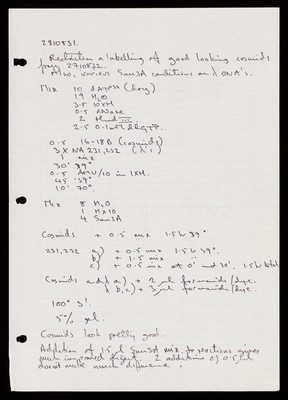 2810831.
Restriction & labelling of good looking cosmids
from 2710832.
Also, various Sau3A conditions on λ DNA's.
Mix 10 dATP³⁵ (dry)
19 H₂O
3.5 10xM
0.5 RNase
2 Hind III
2.5 0.1mM ddGTP.
0.5 16-18B (cosmids)
3 x NA 231,232 (λ's)
1 mix
30' 37°
0.5 AMV/10 in 1xM.
45' 37°
10' 70°.
Mix 8 H₂O
1 Mx10
4 Sau3A
Cosmids + 0.5 mix 1.5h 37°
231,232 a) + 0.5 mix 1.5h 37°.
b) + 1.5 mix
c) + 0.5 mix at 0' and 30'. 1.5h total
Cosmids and λ a) + 2 μl formamide/dye.
λ b,c) + 3 μl formamide/dye.
100° 3'.
5% gel.
Cosmids look pretty good.
Addition of 1.5 μl Sau3A mix to reactions gives
much improved digest. 2 additions of 0.5 μl
doesn't make much difference.